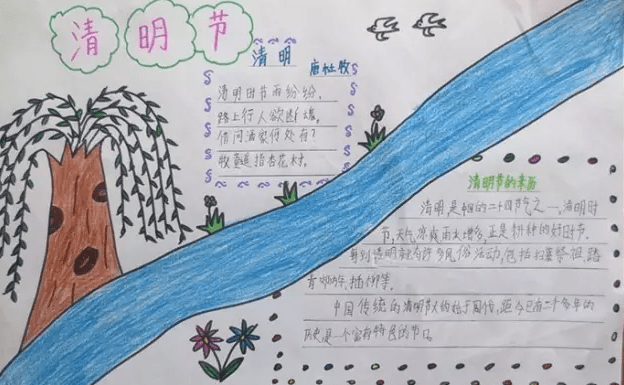 清明节
清明 唐杜牧
清明时节雨纷纷,
路上行人欲断魂,
借问酒家何处有?
牧童遥指杏花村。
清明节的来历
清明是中国的二十四节气之一。清明时
节,天气凉爽雨水增多,正是耕种的好时节。
每到清明就有许多风俗活动,包括扫墓祭祖,踏
青 插柳等。
中国传统的清明节大约始于周代,距今已有二千多年的
历史是一个富有特色的节日。